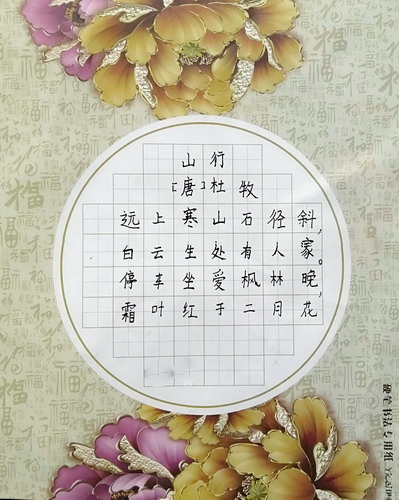 山行
[唐]杜牧
远上寒山石径斜,
白云生处有人家。
停车坐爱枫林晚,
霜叶红于二月花
硬笔书法专用纸